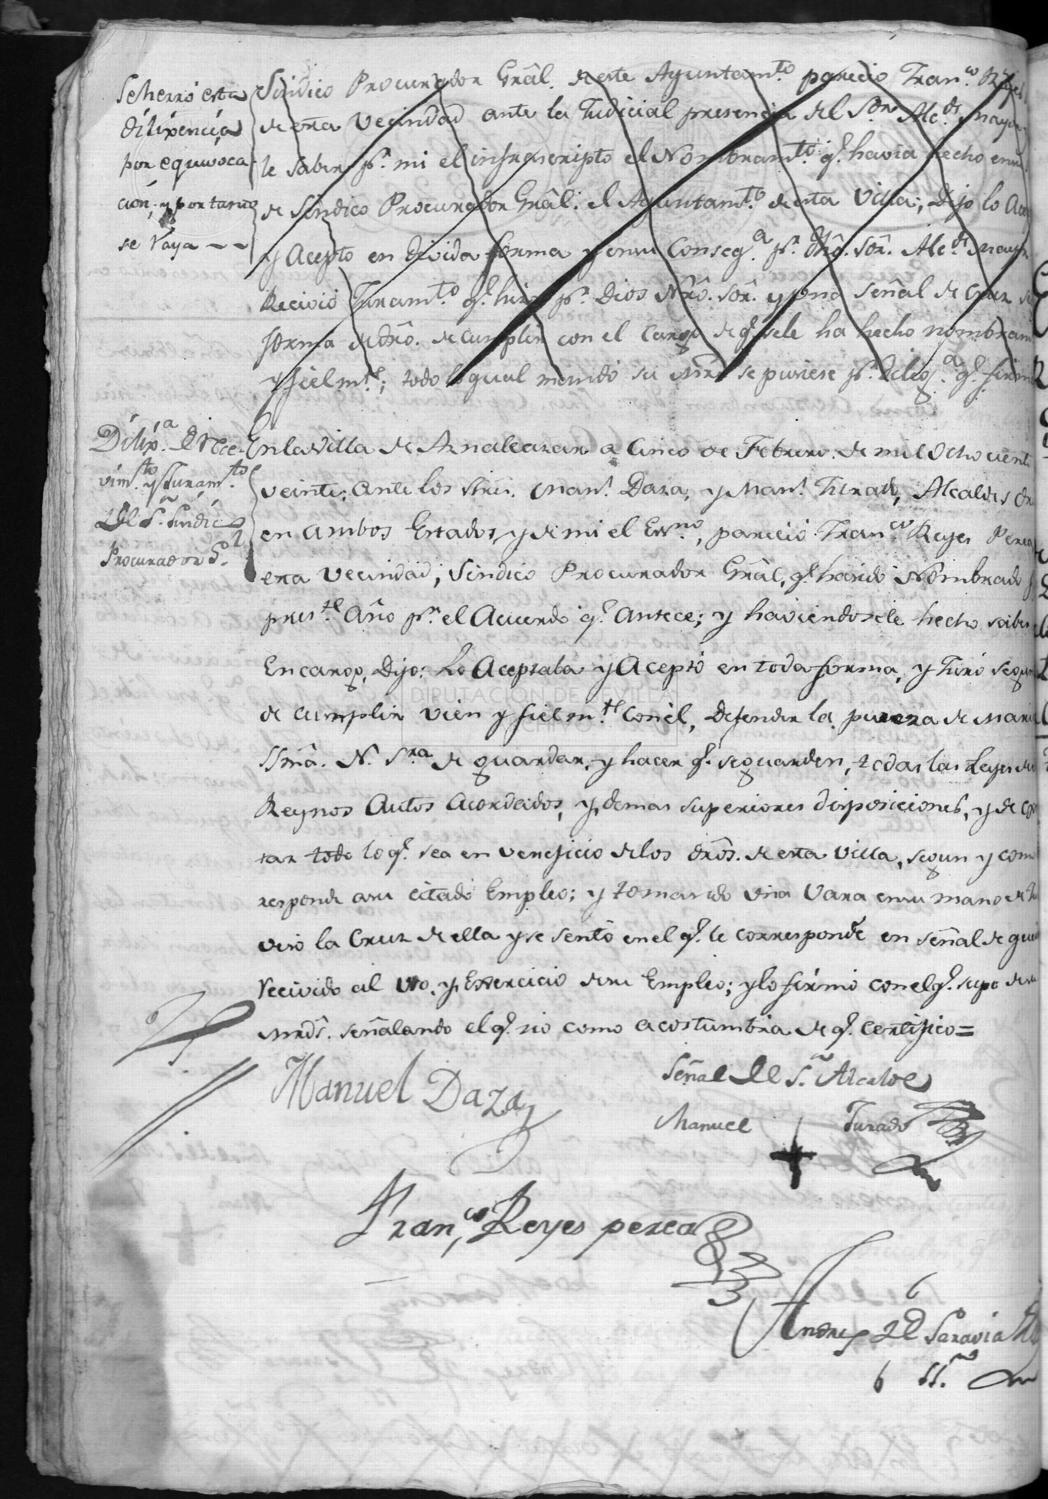 Se herró esta
dilixencia
por equivoca-
ción, y por tanto
se vaya ~ ~
Sindico Procurador Grâl. de este Ayuntam.to parecio Fran.co Reyes
de esta vecindad ante la Judicial presencia del S.or Alc.de mayor
le saber p.r mi el infrascripto el Nombram.to q.e havia hecho en su
de Sindico Procurador Grâl. del Ayuntam.to de esta Villa; Dijo lo
y Acepto en devida forma y en su Conseq.a p.r dho. sor. Alc.de mayor
Recivió Juram.to q.e hizo p.r Dios Nrô. sor. y una señal de Cruz
forma de dro. de cumplir con el Cargo de q.e sele ha hecho nombram
y fielm.te; todo lo qual mando su Mrd se pusiese p.r Dilig.a q.e firmó
Dilix.a de Rece-
vim.to y Juram.to
del S.r Sindico
Procurador G.l
En la Villa de Aznalcazar a Cinco de Febrero de mil Ochocient
veinte; ante los Sres. Man.l Daza, y Man.l Jurado, Alcaldes
en ambos Estados, y de mi el Es.no, pareció Fran.co Reyes Perea
esta vecindad, Sindico Procurador Grâl, q.e ha sido Nombrado
pres.te Año p.r el Acuerdo q.e antece; y haviendosele hecho saber
Encargo, Dijo: Lo Aceptaba y Aceptó en toda forma, y Juró segun
de cumplir vien y fielm.te con èl, defender la pureza de Mari
SSmâ. N. S.ra de guardar, y hacer q.e se guarden, todas las Leyes de
Reynos Autos Acordados, y demas superiores disposiciones, y de
tar todo lo q.e sea en veneficio de los drôs. de esta Villa, segun y com
responde a su citado Empleo; y tomando una Vara en su mano
vesó la Cruz de ella y se sentó en el q.e le corresponde en señal de
recivido al Uso, y Exercicio de su Empleo; y lo firmó con el q.e supo de
mrds. señalando el q.e no como acostumbra de q.e Certifico=
Manuel Daza
Señal del S.r Alcalde
Manuel + Jurado
Fran.co Reyes perea
Andres de Saravia
SS.no
DIPUTACIÓN DE SEVILLA
ARCHIVO